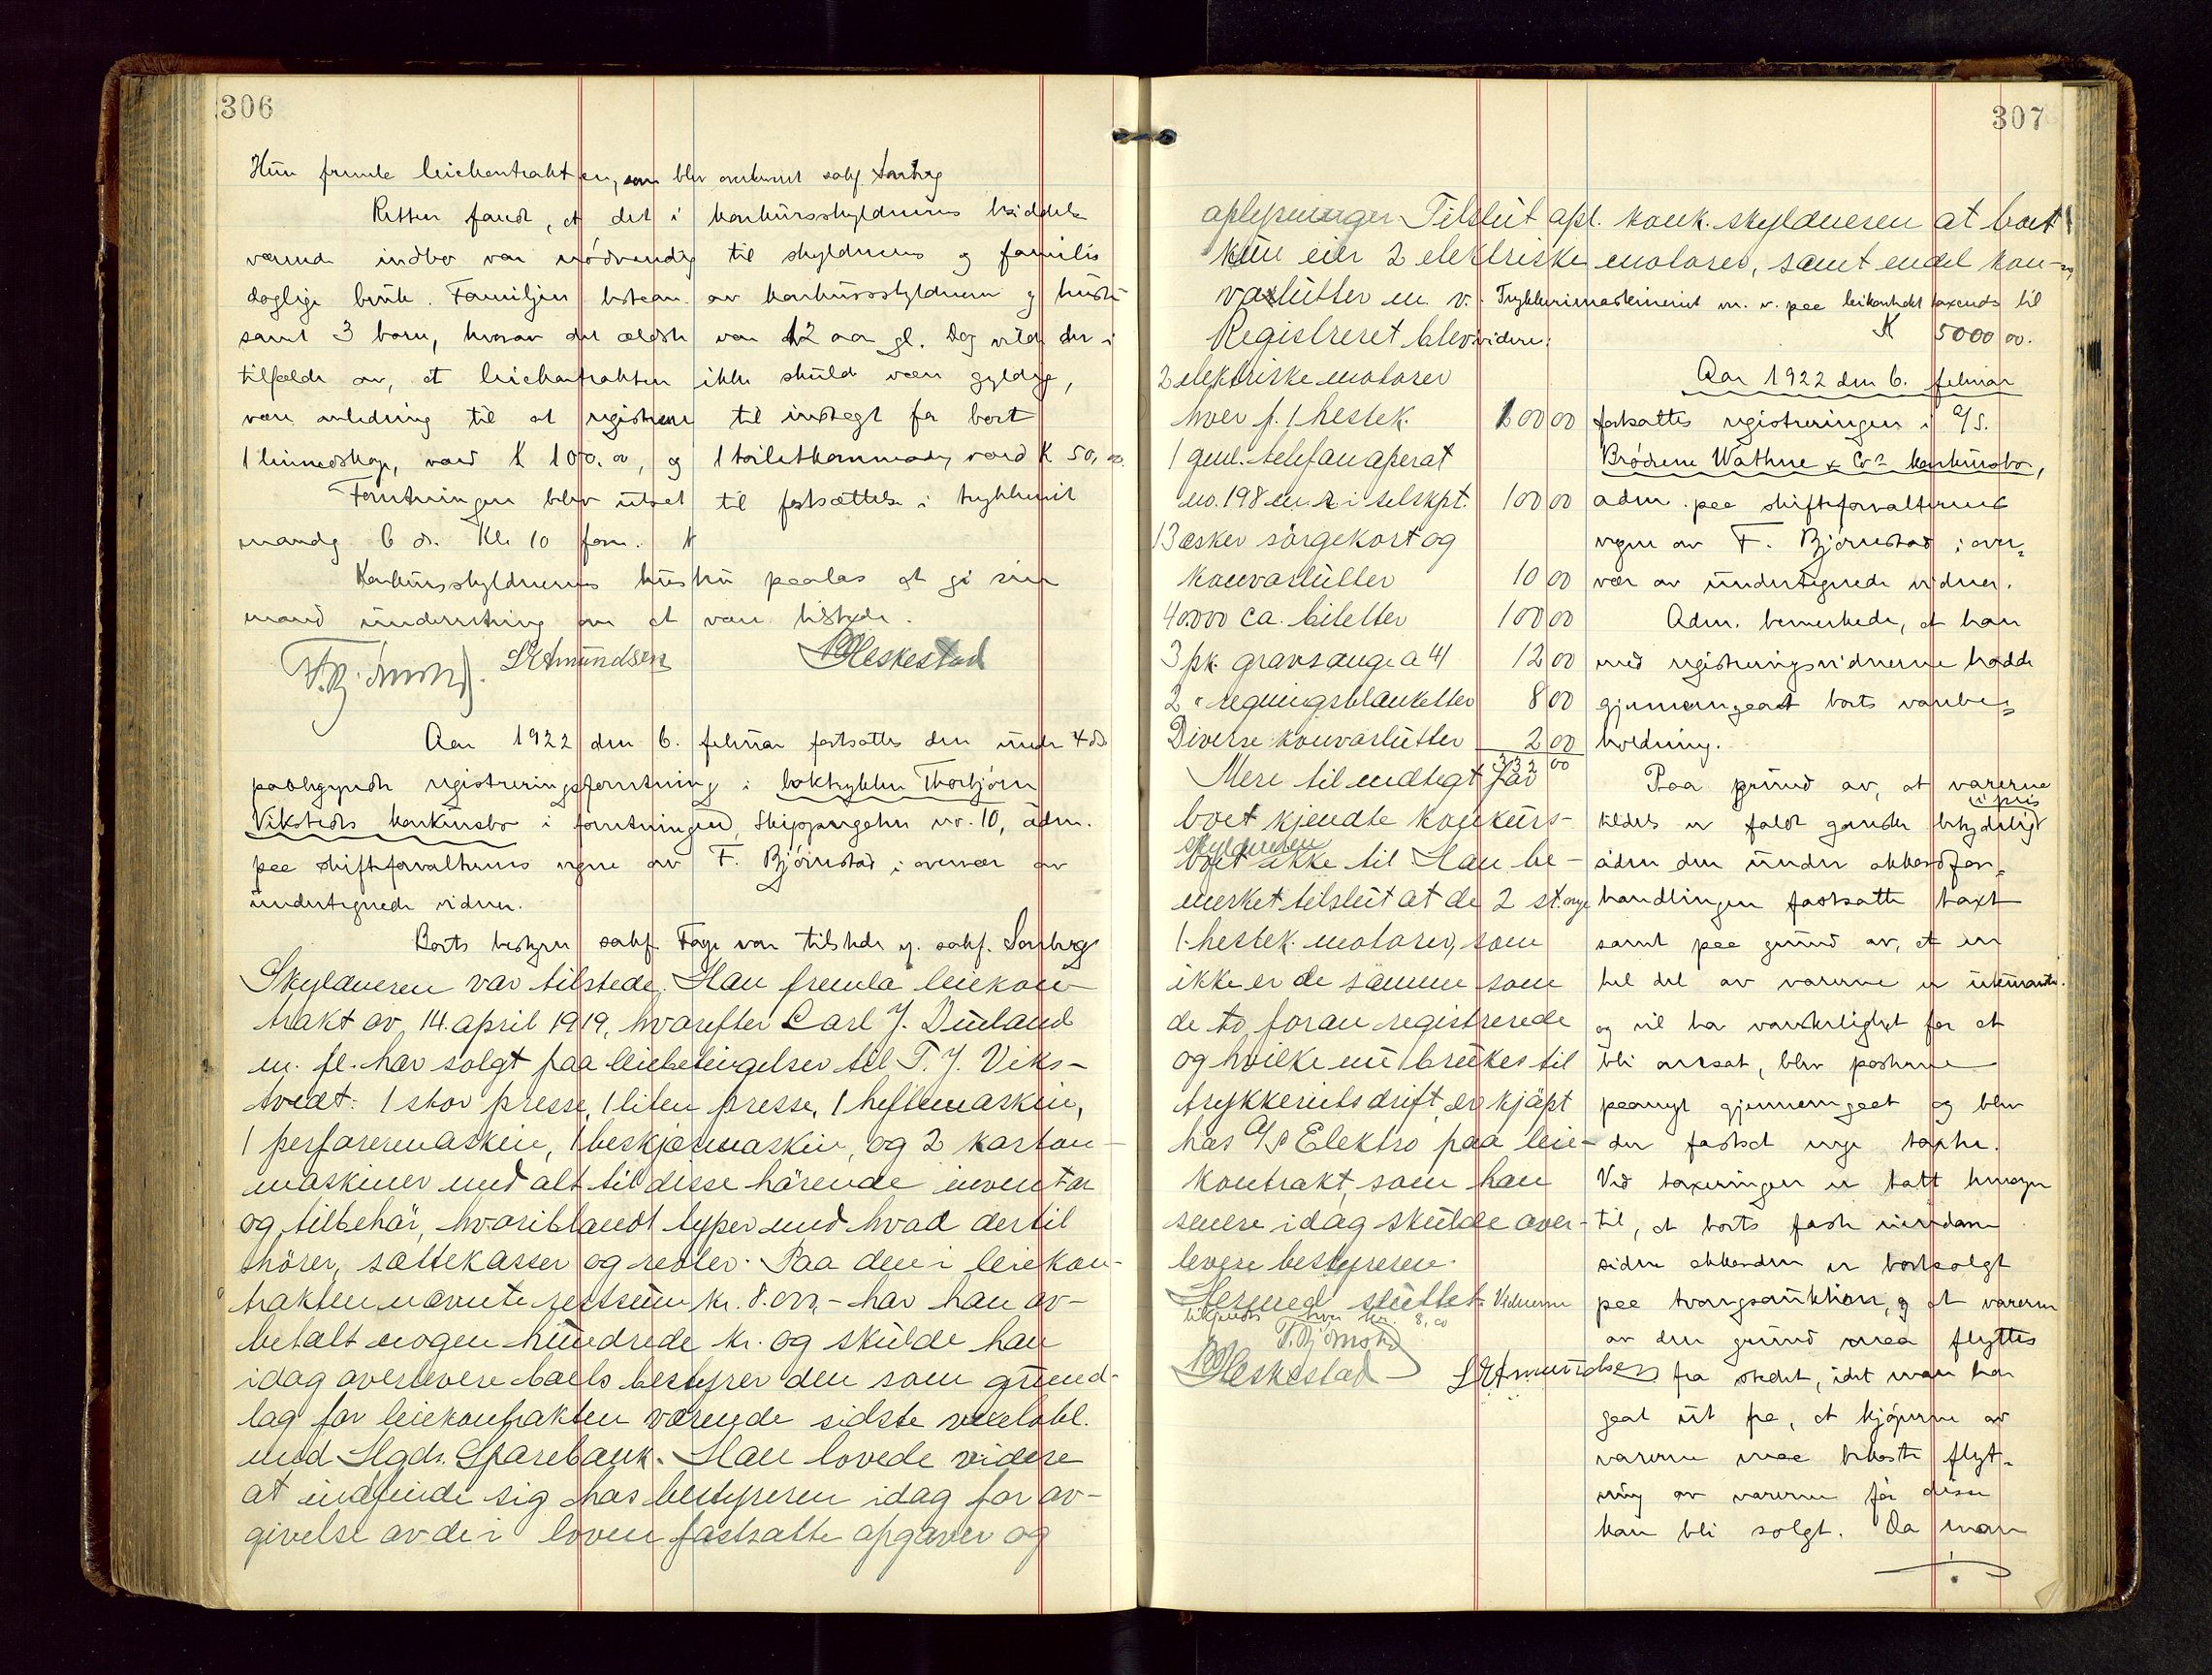 306
Hun fremla leiekontrakten, som blev overlevert sakf. Sørhag
Retten fandt, at det i konkursskyldnerens
værende indbo var nødvendig til skyldnerens og familis
daglige bruk. Familjen bestaar av konkursskyldneren og hustru
samt 3 barn, hvorav det ældste var 12 aar gl. Dog vilde der i
tilfælde av, at leiekontrakten ikke skulde være gyldig,
være anledning til at registrere til indtægt for boet
1 linnedskap, værd K 100.00, og 1 toiletkommode, værd K 50,00.
Forretningen blev utsat til fortsættelse i trykkeriet
mandag 6 ds. Kl. 10 form.
Konkursskyldnerens hustru paalas at gi sin
mand underretning om at være tilstede.
F. Bjørnstad. S Amundsen Heskestad
Aar 1922 den 6. februar fortsattes den under 4 ds
paabegyndte registreringsforretning i boktrykker Thorbjørn
Vikstvedts konkursbo i forretningen, Skippergaten no. 10, adm.
paa skifteforvalterens vegne av F. Bjørnstad i overvær av
undertegnede vidner.
Boets bestyrer sakf. Fage var tilstede og sakf. Sørhag
Skyldneren var tilstede. Han fremla leiekon-
trakt av 14. april 1919, hvorefter Carl J. Dueland
m. fl. har solgt paa leiebetingelser til T. J. Viks-
tvedt: 1 stor presse, 1 liten presse, 1 heftemaskin,
1 perforermaskin, 1 beskjærmaskin, og 2 karton-
maskiner med alt til disse hørende inventar
og tilbehør, hvoriblandt typer med hvad dertil
hører, sættekasser og reoler. Paa den i leiekon-
trakten nævnte restsum kr. 8.000,- har han av-
betalt nogen hundrede kr. og skulde han
idag overlevere boets bestyrer den som grund-
lag for leiekontrakten værende sidste vekselobl.
med Hgds. Sparebank. Han lovede videre
at indfinde sig hos bestyreren idag for av-
givelse av de i loven fastsatte opgaver og
307
oplysninger. Tilslut opl. konk. skyldneren at boet
kun eier 2 elektriske motorer, samt endel kon-
volutter m. v. Trykkerimaskineriet m. v. paa leiekontrakt taxeres til
K 5000 00.
Registreret blev videre:
2 elektriske motorer
hver p. 1 hestek. 100 00
1 gml. telefonaperat
no. 198 i selskpt. 100 00
13 æsker sørgekort og
konvolutter 10 00
40000 ca. biletter 100 00
3 pk. gravsange a 4/ 12 00
2 " regningsblanketter 8 00
Diverse konvolutter 2 00
332 00
Mere til indtægt for
boet kjendte konkurs-
skyldneren
boet ikke til. Han be-
merket tilslut at de 2 st.
1-hestek. motorer, som
ikke er de samme som
de to foran registrerede
og hvilke nu brukes til
trykkeriets drift er kjøpt
hos A/S Elektro paa leie-
kontrakt, som han
senere idag skulde over-
levere bestyreren.
Hermed sluttet. Vidnerne
tilkjendes hver kr. 8,00
F. Bjørnstad
Heskestad S Amundsen
Aar 1922 den 6. februar
fortsattes registreringen i A/S.
Brødrene Wathne & Co's konkursbo,
adm. paa skifteforvalterens
vegne av F. Bjørnstad i over-
vær av undertegnede vidner.
Adm. bemerkede, at han
med registreringsvidnerne hadde
gjennemgaat boets varebe-
holdning.
Paa grund av, at varerne
i pris
tildels er faldt ganske betydelig
siden den under akkordfor-
handlingen fastsatte taxt
samt paa grund av, at en
hel del av varerne er ukurante
og vil ha vanskelighet for at
bli avsat, blev posterne
paanyt gjennemgaat og blev
der fastsat nye takster.
Ved taxeringen er tatt hensyn
til, at boets faste eiendom
siden akkorden er bortsolgt
paa tvangsauktion, og at varerne
av den grund maa flyttes
fra stedet, idet man har
gaat ut fra, at kjøperne av
varerne maa bekoste flyt-
ning av varerne før disse
kan bli solgt. Da man